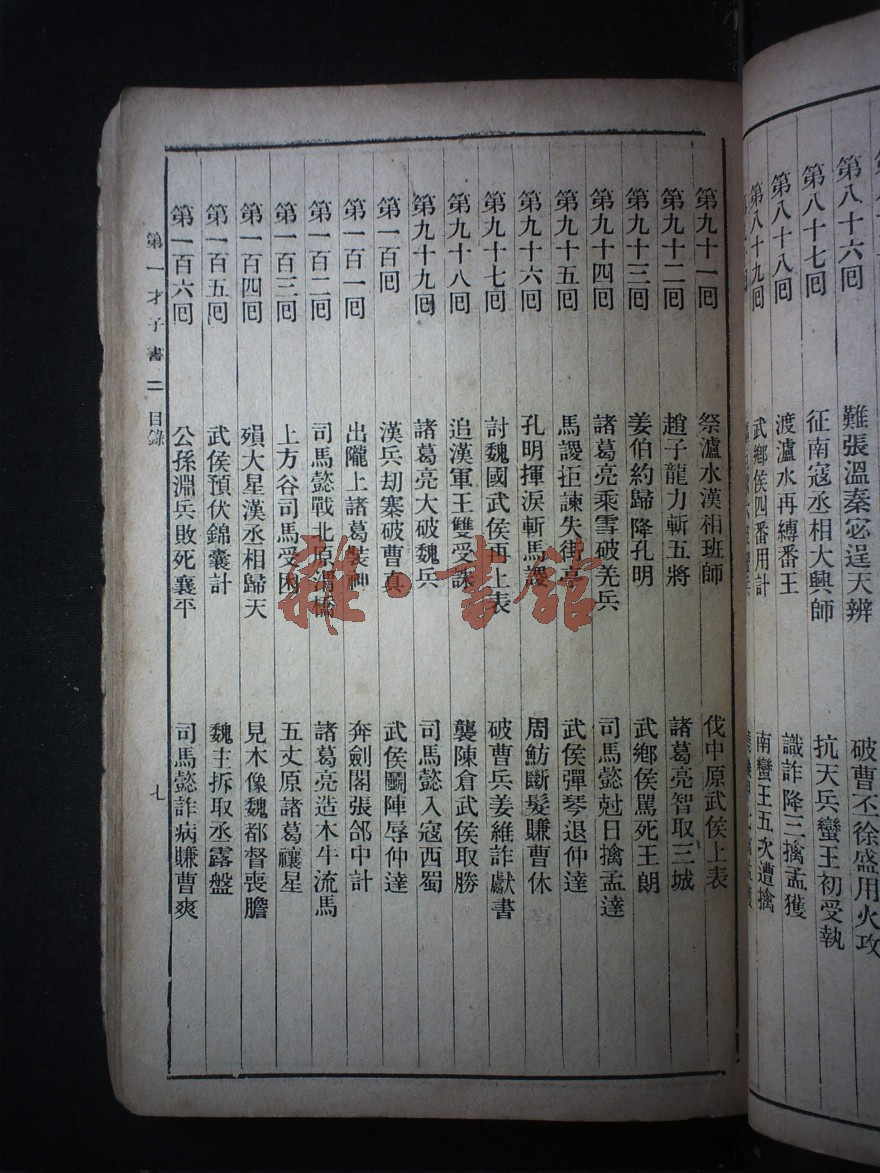 難張溫秦宓逞天辨 破曹丕徐盛用火攻
第八十六回
第八十七回 征南寇丞相大興師 抗天兵蠻王初受執
第八十八回 渡瀘水再縛番王 識詐降三擒孟獲
第八十九回 武鄉侯四番用計 南蠻王五次遭擒
第九十一回 祭瀘水漢相班師 伐中原武侯上表
第九十二回 趙子龍力斬五將 諸葛亮智取三城
第九十三回 姜伯約歸降孔明 武鄉侯罵死王朗
第九十四回 諸葛亮乘雪破羌兵 司馬懿尅日擒孟達
第九十五回 馬謖拒諫失街亭 武侯彈琴退仲達
第九十六回 孔明揮淚斬馬謖 周魴斷髮賺曹休
第九十七回 討魏國武侯再上表 破曹兵姜維詐獻書
第九十八回 追漢軍王雙受誅 襲陳倉武侯取勝
第九十九回 諸葛亮大破魏兵 司馬懿入寇西蜀
第一百回 漢兵刧寨破曹真 武侯鬭陣辱仲達
第一百一回 出隴上諸葛裝神 奔劍閣張郃中計
第一百二回 司馬懿戰北原渭橋 諸葛亮造木牛流馬
第一百三回 上方谷司馬受困 五丈原諸葛禳星
第一百四回 殞大星漢丞相歸天 見木像魏都督喪膽
第一百五回 武侯預伏錦囊計 魏主拆取承露盤
第一百六回 公孫淵兵敗死襄平 司馬懿詐病賺曹爽
第一才子書 二 目錄 七
雜·書館